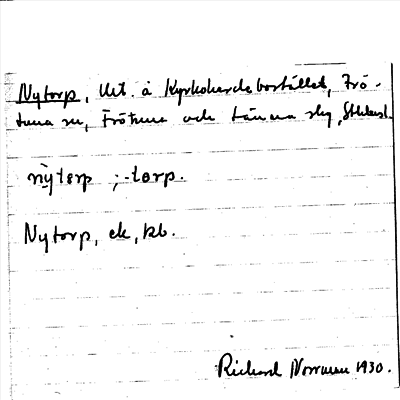 Nytorp, lht. å Kyrkoherdebostället, Frö-
tuna sn, Frötuna och Länna slg, Sthlms l.
nỳtɵrp ; -tɵrp.
Nytorp, ek, kb.
Richard Norrman 1930.